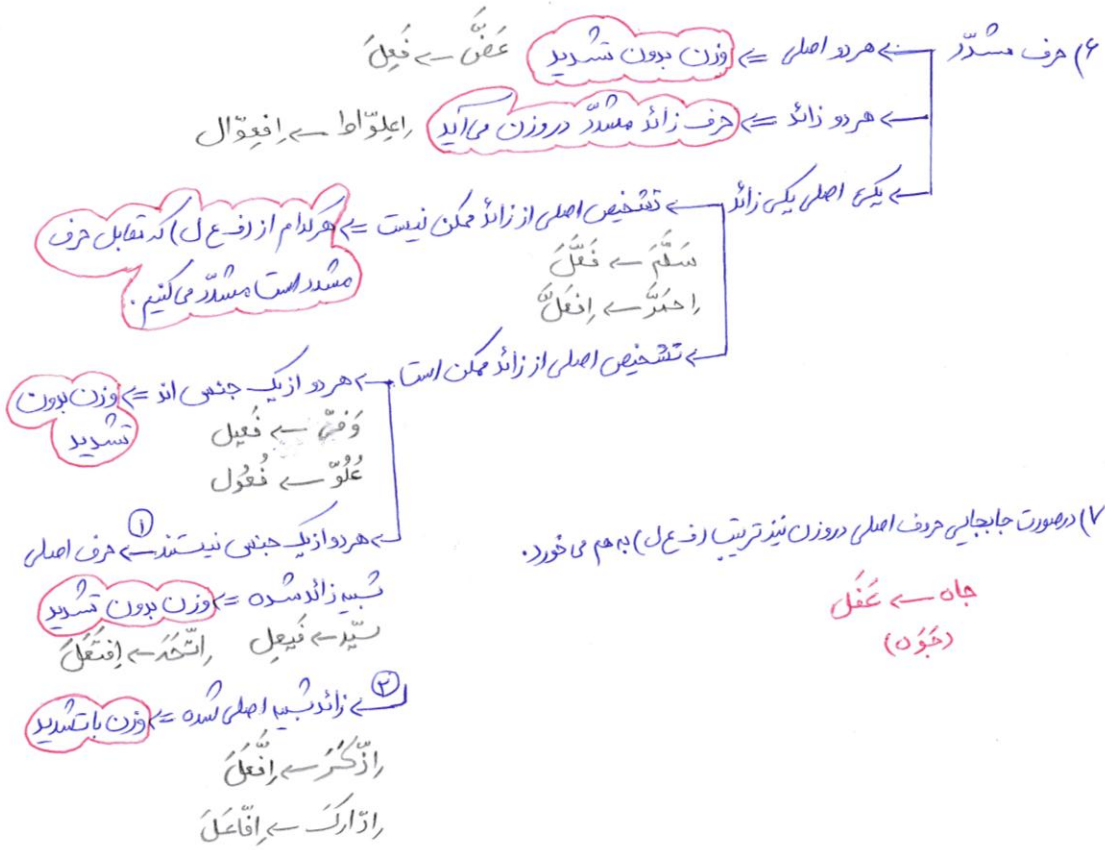 ۶) حرف مشدّد ← هر دو اصلی ⇐ وزن بدون تشدید عَضَّ ← فَعِلَ
← هر دو زائد ⇐ حرف زائد مشدّد در وزن می‌آید اِعلِوّاط ← اِفعِوّال
← یکی اصلی یکی زائد ← تشخیص اصلی از زائد ممکن نیست ⇐ هر کدام از (ف ع ل) که مقابل حرف
مشدد است مشدّد می‌کنیم.
سَلَّمَ ← فَعَّلَ
اِحمَرَّ ← اِفعَلَّ
← تشخیص اصلی از زائد ممکن است ← هر دو از یک جنس اند ⇐ وزن بدون
تشدید
وَفیّ ← فَعیل
عُلُوّ ← فُعُول
← هر دو از یک جنس نیستند ← ① حرف اصلی
شبیه زائد شده ⇐ وزن بدون تشدید
سیِّد ← فَیعِل اِتَّحَدَ ← اِفتَعَلَ
② ← زائد شبیه اصلی شده ⇐ وزن با تشدید
اِذَّکَّرَ ← اِفَّعَّلَ
اِدّارَکَ ← اِفّاعَلَ
۷) در صورت جابجایی حروف اصلی در وزن نیز ترتیب (ف ع ل) به هم می خورد.
جاه ← عَفَل
(جَوَه)